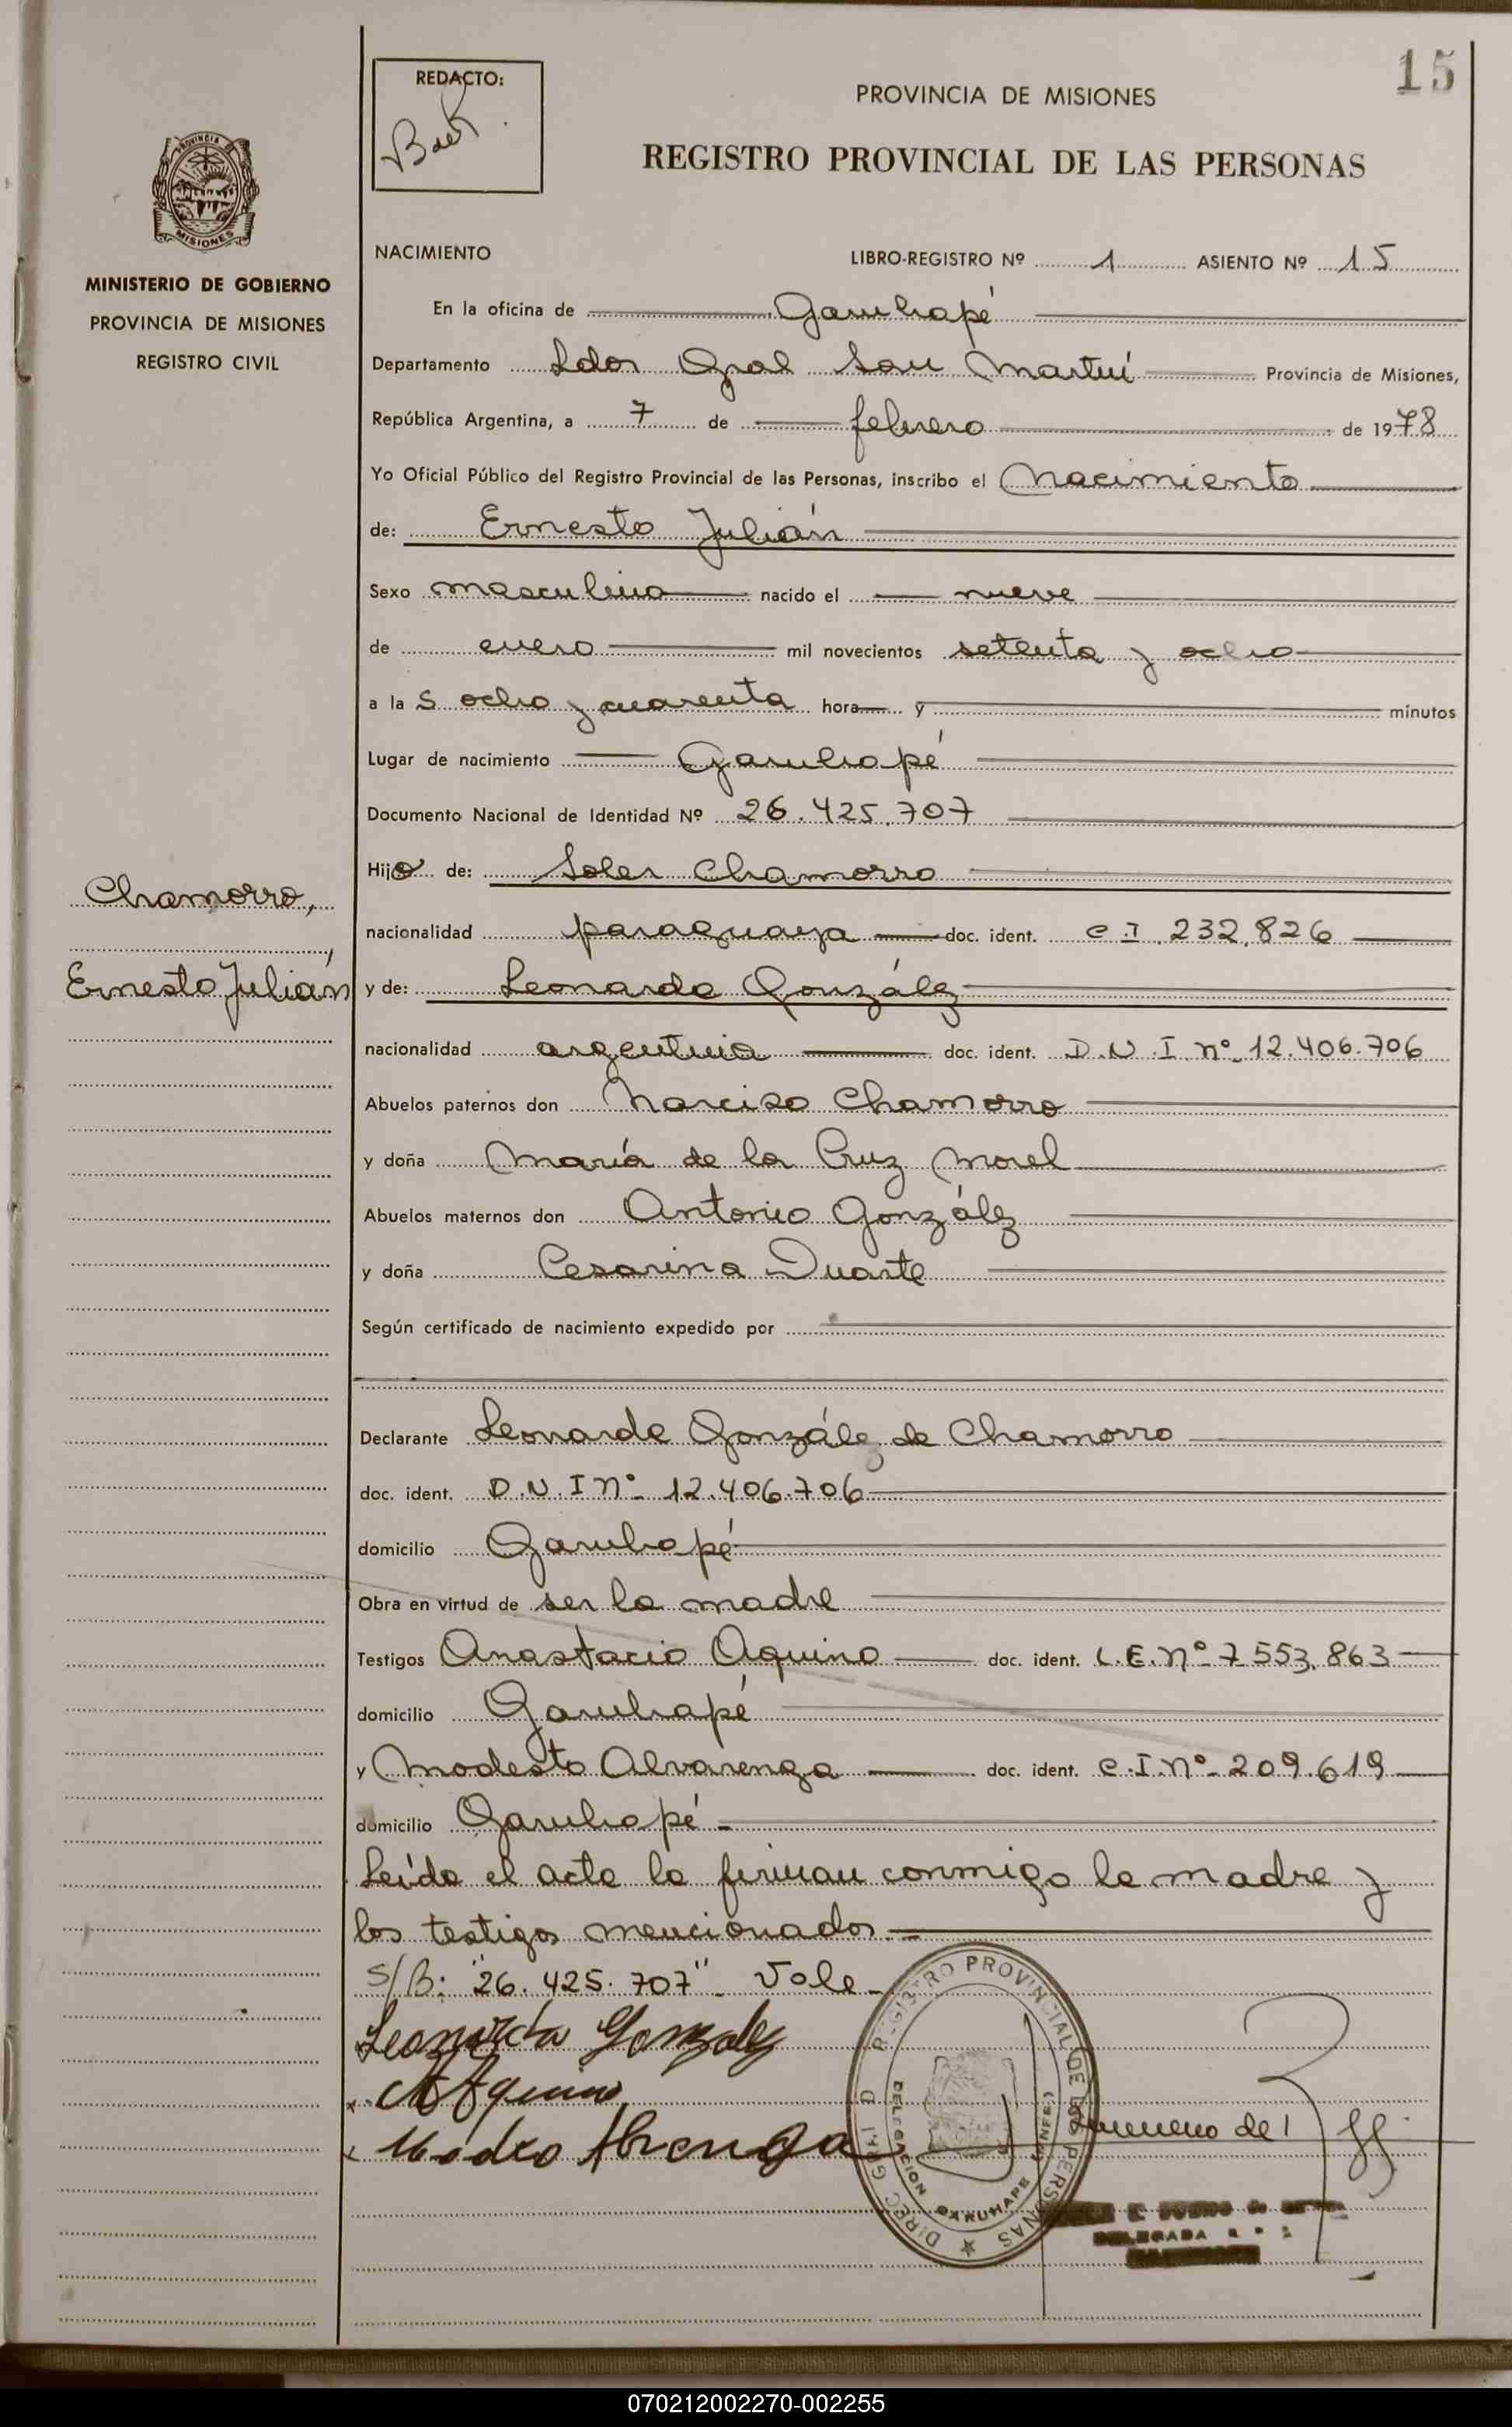 15
REDACTO:
PROVINCIA DE MISIONES
REGISTRO PROVINCIAL DE LAS PERSONAS
PROVINCIA DE
MISIONES
MINISTERIO DE GOBIERNO
PROVINCIA DE MISIONES
REGISTRO CIVIL
NACIMIENTO LIBRO-REGISTRO Nº 1 ASIENTO Nº 15
En la oficina de Garuhapé
Departamento Ldor Gral San Martín Provincia de Misiones,
República Argentina, a 7 de febrero de 1978
Yo Oficial Público del Registro Provincial de las Personas, inscribo el Nacimiento
de: Ernesto Julián
Sexo masculino nacido el nueve
de enero mil novecientos setenta y ocho
a la s ocho y cuarenta hora y minutos
Lugar de nacimiento Garuhapé
Documento Nacional de Identidad Nº 26.425.707
Hijo de: Soler Chamorro
Chamorro,
nacionalidad paraguaya doc. ident. C.I. 232.826
Ernesto Julián
y de: Leonarda González
nacionalidad argentina doc. ident. D.N.I. nº 12.406.706
Abuelos paternos don Narciso Chamorro
y doña María de la Cruz Morel
Abuelos maternos don Antonio González
y doña Cesarina Duarte
Según certificado de nacimiento expedido por
Declarante Leonarda González de Chamorro
doc. ident. D.N.I Nº 12.406.706
domicilio Garuhapé
Obra en virtud de ser la madre
Testigos Anastacio Aquino doc. ident. L.E. Nº 7.553.863
domicilio Garuhapé
y Modesto Alvarenga doc. ident. C.I. Nº 209.619
domicilio Garuhapé
Leída el acta la firman conmigo la madre y
los testigos mencionados
S/B: "26.425.707" Vale
Leonarda Gonzalez
Aquino
DIREC GRAL D REGISTRO PROVINCIAL DE LAS PERSONAS
DELEGACION GARUHAPE
DELEGADA
070212002270-002255